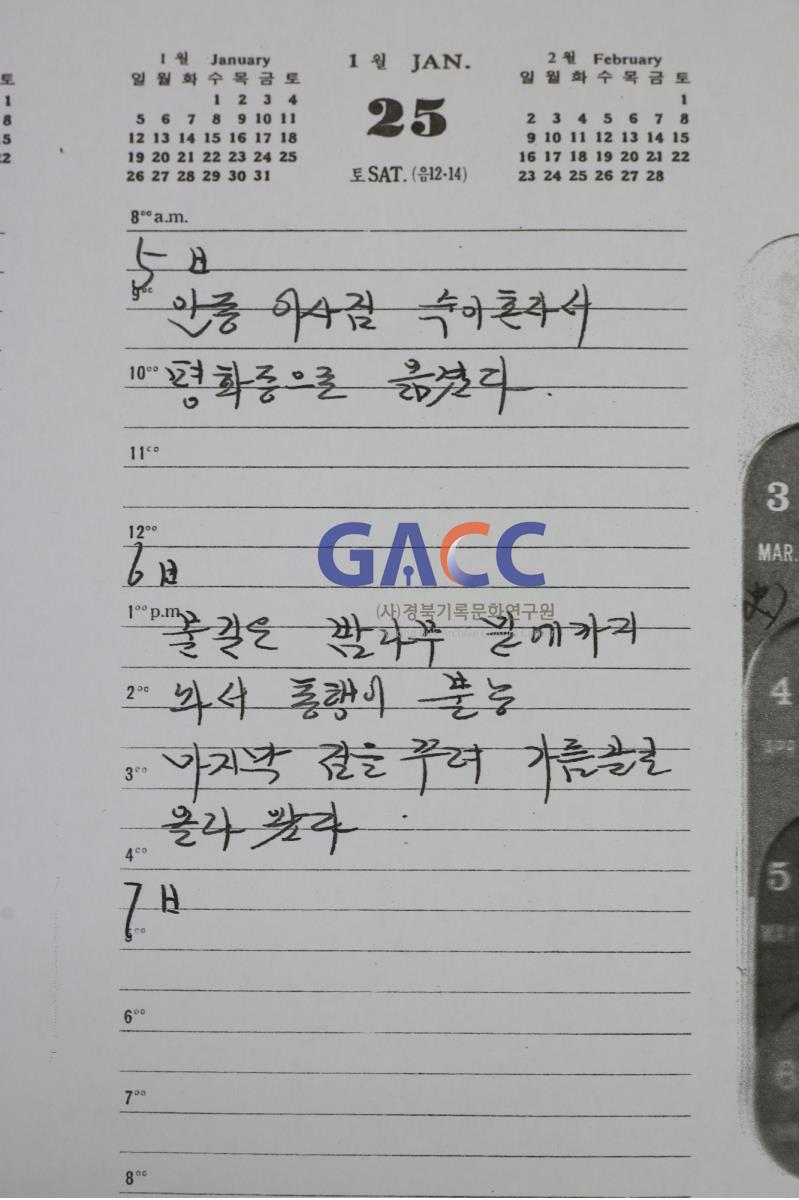 토
1
8
15
22
1 월 January
일 월 화 수 목 금 토
1 2 3 4
5 6 7 8 9 10 11
12 13 14 15 16 17 18
19 20 21 22 23 24 25
26 27 28 29 30 31
1 월 JAN.
25
토 SAT. (음12·14)
2 월 February
일 월 화 수 목 금 토
1
2 3 4 5 6 7 8
9 10 11 12 13 14 15
16 17 18 19 20 21 22
23 24 25 26 27 28
8⁰⁰ a.m.
5 日
9⁰⁰
안동 이사짐 숙이혼자서
10⁰⁰ 평화동으로 옮겼다.
11⁰⁰
12⁰⁰
GACC
6 日
(사)경북기록문화연구원
1⁰⁰ p.m.
물길은 밤나무 밑에까지
2⁰⁰ 와서 통행이 불능
3⁰⁰ 마지막 짐을 꾸려 가름골로
올라 왔다.
4⁰⁰
7 日
5⁰⁰
6⁰⁰
7⁰⁰
8⁰⁰
3
MAR.
4
5
6